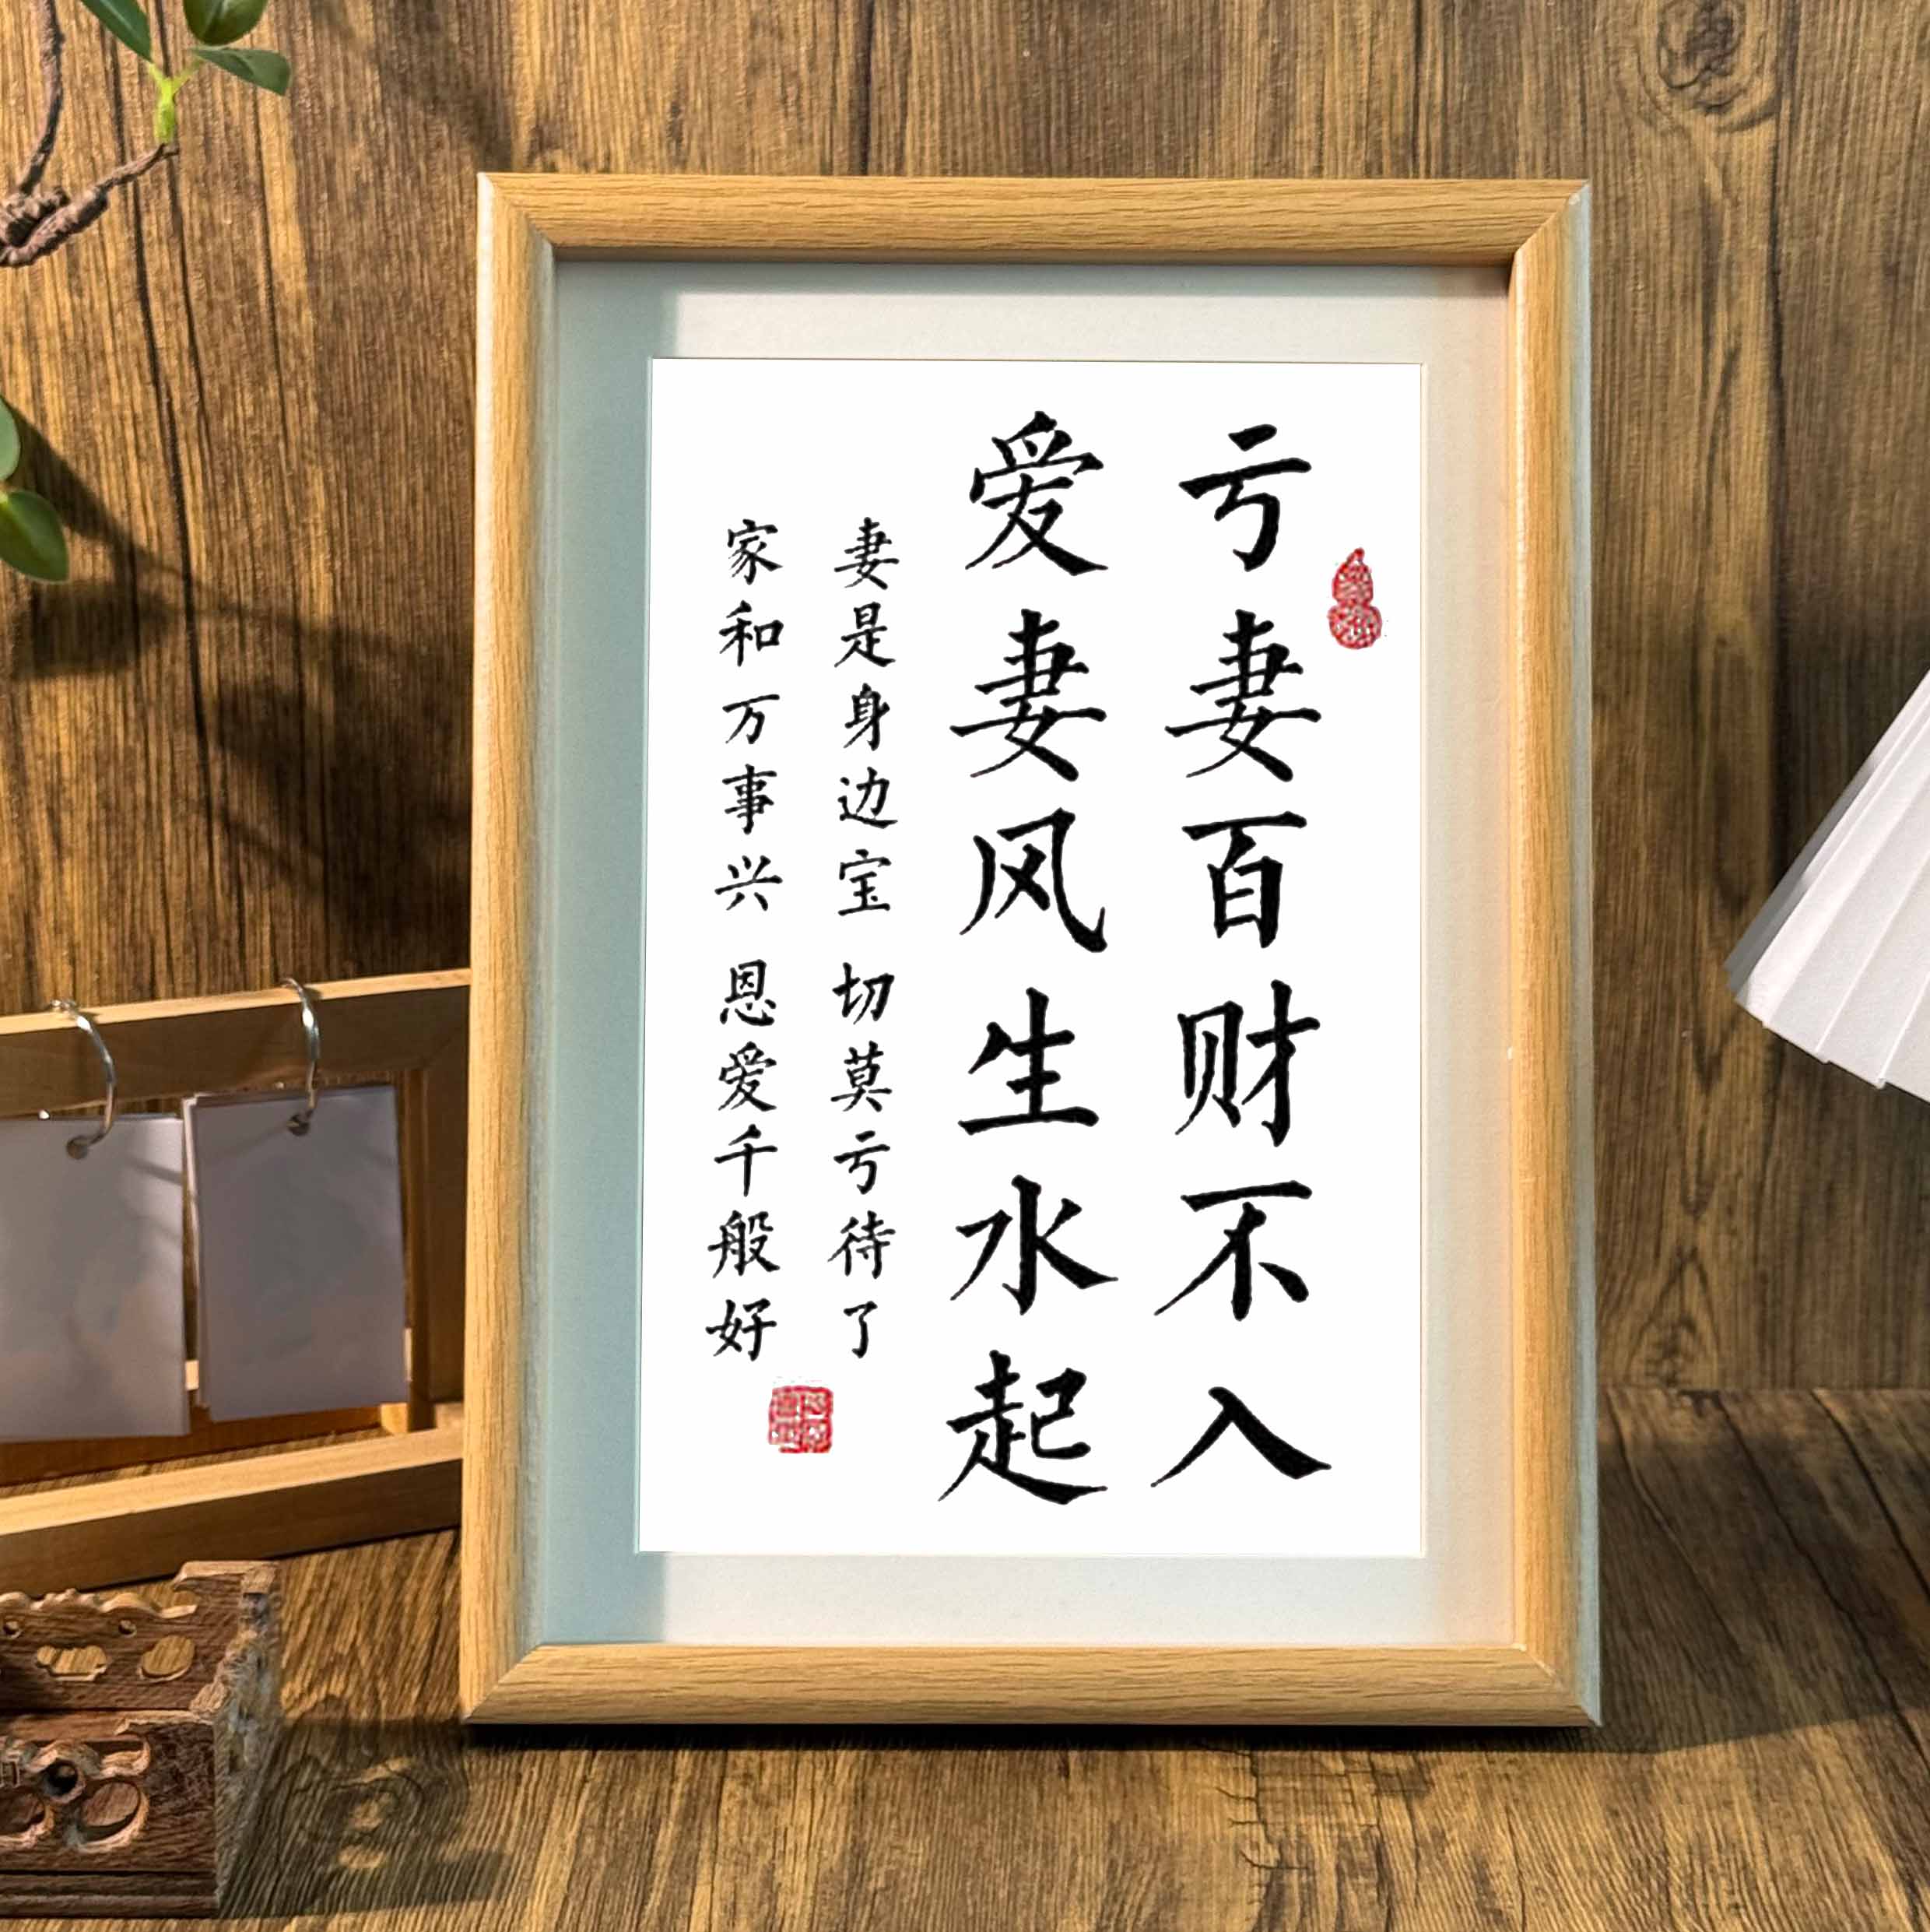 亏妻百财不入
爱妻风生水起
妻是身边宝 切莫亏待了
家和万事兴 恩爱千般好